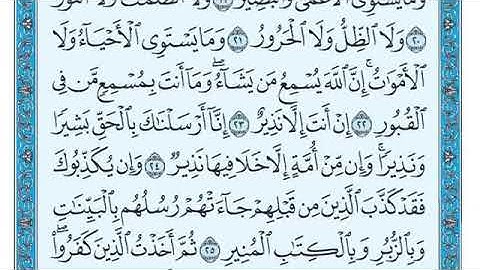 وَمَا يَسْتَوِى الْأَعْمَىٰ وَالْبَصِيرُ ١٩ وَلَا الظُّلُمَاتُ وَلَا النُّورُ
٢٠ وَلَا الظِّلُّ وَلَا الْحَرُورُ ٢١ وَمَا يَسْتَوِى الْأَحْيَاءُ وَلَا
الْأَمْوَاتُ ۚ إِنَّ اللَّهَ يُسْمِعُ مَن يَشَاءُ ۖ وَمَا أَنتَ بِمُسْمِعٍ مَّن فِى
الْقُبُورِ ٢٢ إِنْ أَنتَ إِلَّا نَذِيرٌ ٢٣ إِنَّا أَرْسَلْنَاكَ بِالْحَقِّ بَشِيرًا
وَنَذِيرًا ۚ وَإِن مِّنْ أُمَّةٍ إِلَّا خَلَا فِيهَا نَذِيرٌ ٢٤ وَإِن يُكَذِّبُوكَ
فَقَدْ كَذَّبَ الَّذِينَ مِن قَبْلِهِمْ جَاءَتْهُمْ رُسُلُهُم بِالْبَيِّنَاتِ
وَبِالزُّبُرِ وَبِالْكِتَابِ الْمُنِيرِ ٢٥ ثُمَّ أَخَذْتُ الَّذِينَ كَفَرُوا ۖ